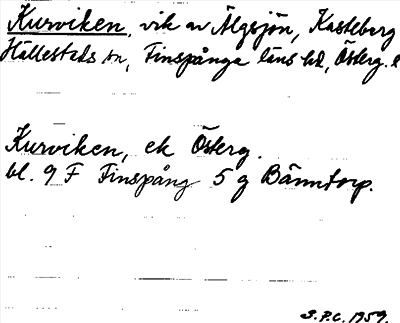 Kurviken, vik av Älgsjön, Kasteberg
Hällestads sn, Finspånga läns hd, Österg. l
Kurviken, ek Österg.
bl. 9 F Finspång 5 g Bänntorp.
S.P.C. 1959.